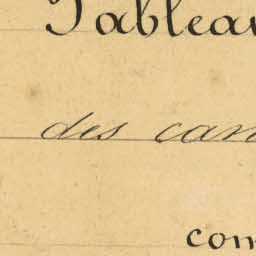 Tableau
des can
com